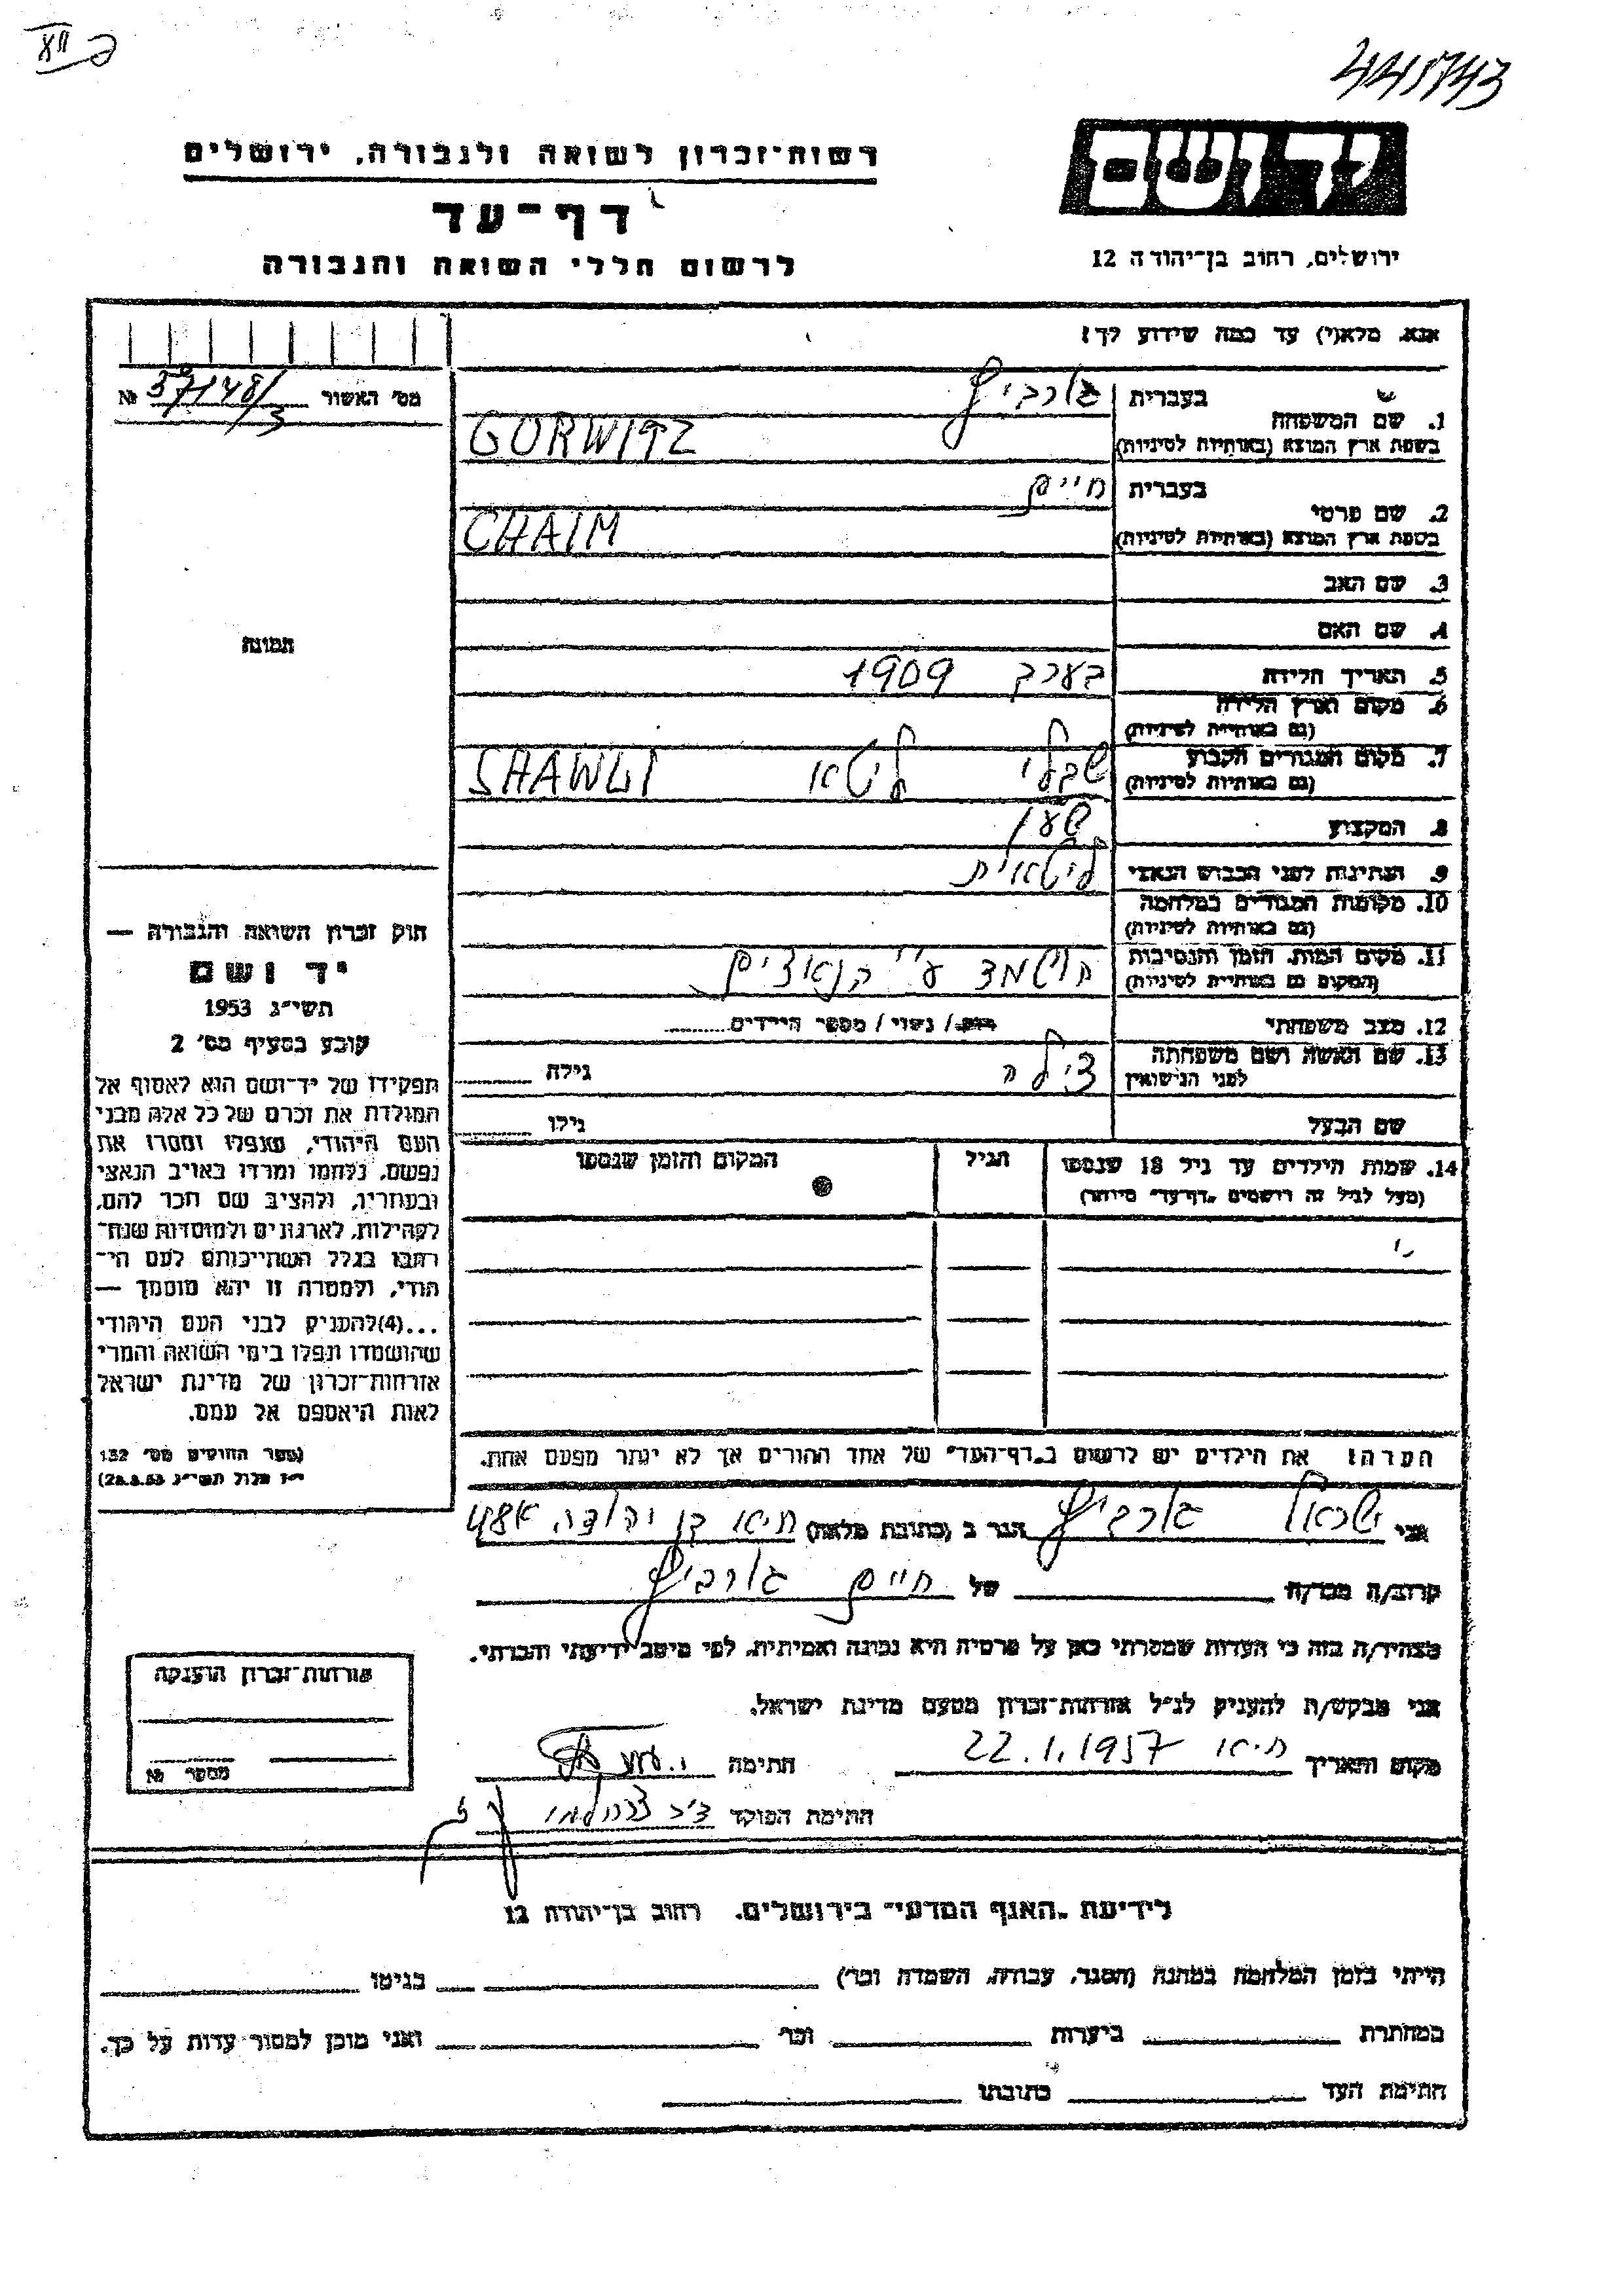 445743
רשות־זכרון לשואה ולגבורה, ירושלים
יד ושם
דף־עד
ירושלים, רחוב בן־יהודה 12
לרשום חללי השואה והגבורה
אנא, מלא(י) עד כמה שידוע לך!
מס׳ האשור 37148/3 №
בעברית גורביץ
1. שם המשפחה
בשפת ארץ המוצא (באותיות לטיניות) GORWITZ
בעברית חיים
2. שם פרטי
בשפת ארץ המוצא (באותיות לטיניות) CHAIM
3. שם האב
4. שם האם
תמונה
5. תאריך הלידה בערך 1909
6. מקום וארץ הלידה
(גם באותיות לטיניות)
7. מקום המגורים הקבוע שבלי ליטא SHAWLI
(גם באותיות לטיניות)
8. המקצוע שען
9. הנתינות לפני הכבוש הנאצי ליטאית
10. מקומות המגורים במלחמה
(גם באותיות לטיניות)
11. מקום המות, הזמן והנסיבות הושמד ע״י הנאצים
(המקום גם באותיות לטיניות)
12. מצב משפחתי רווק / נשוי / מספר הילדים
13. שם האשה ושם משפחתה צילה גילה
לפני הנישואין
שם הבעל גילו
14. שמות הילדים עד גיל 18 שנספו הגיל המקום והזמן שנספו
(מעל לגיל זה רושמים „דף־עד״ מיוחד)
חוק זכרון השואה והגבורה —
יד ושם
תשי״ג 1953
קובע בסעיף מס׳ 2
תפקידו של יד־ושם הוא לאסוף אל
המולדת את זכרם של כל אלה מבני
העם היהודי, שנפלו ומסרו את
נפשם, נלחמו ומרדו באויב הנאצי
ובעוזריו, ולהציב שם וזכר להם,
לקהילות, לארגונים ולמוסדות שנח־
רבו בגלל השתייכותם לעם הי־
הודי, ולמטרה זו יהא מוסמך —
...(4)להעניק לבני העם היהודי
שהושמדו ונפלו בימי השואה והמרי
אזרחות־זכרון של מדינת ישראל
לאות היאספם אל עמם.
(ספר החוקים מס׳ 132
י״ז אלול תשי״ג 28.8.53)
הערה: את הילדים יש לרשום ב„דף־העד״ של אחד ההורים אך לא יותר מפעם אחת.
אני ישראל גורביץ הגר ב (כתובת מלאה) חיא בן יהודה 48א
קרוב/ה מכר/ה של חיים גורביץ
מצהיר/ה בזה כי העדות שמסרתי כאן על פרטיה היא נכונה ואמיתית, לפי מיטב ידיעתי והכרתי.
אני מבקש/ת להעניק לנ״ל אזרחות־זכרון מטעם מדינת ישראל.
מקום ותאריך ת״א 22.1.1957 חתימה
חתימת הפוקד
אזרחות־זכרון הוענקה
מספר №
לידיעת „האגף המדעי״ בירושלים, רחוב בן־יהודה 12
הייתי בזמן המלחמה במחנה (הסגר, עבודה, השמדה וכו׳) בגיטו
במחתרת ביערות וכו׳ ואני מוכן למסור עדות על כך.
חתימת העד כתובתו